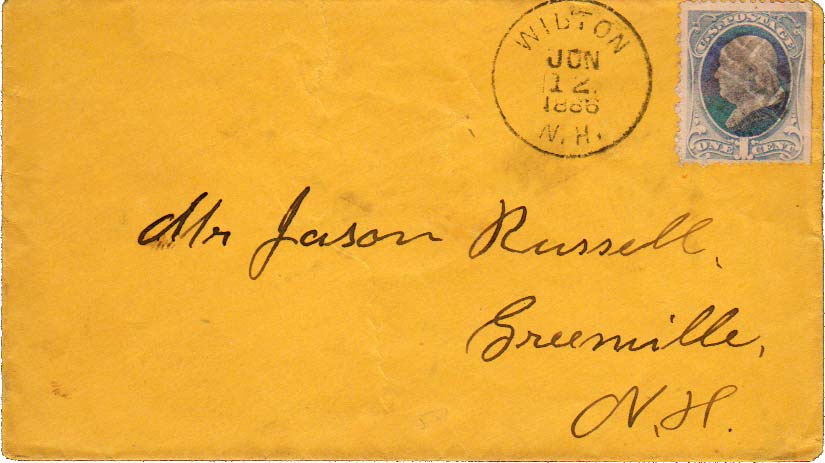 WILTON
JUN
12
1886
N.H.
U.S. POSTAGE
ONE 1 CENT
Mr Jason Russell,
Greenville,
N.H.